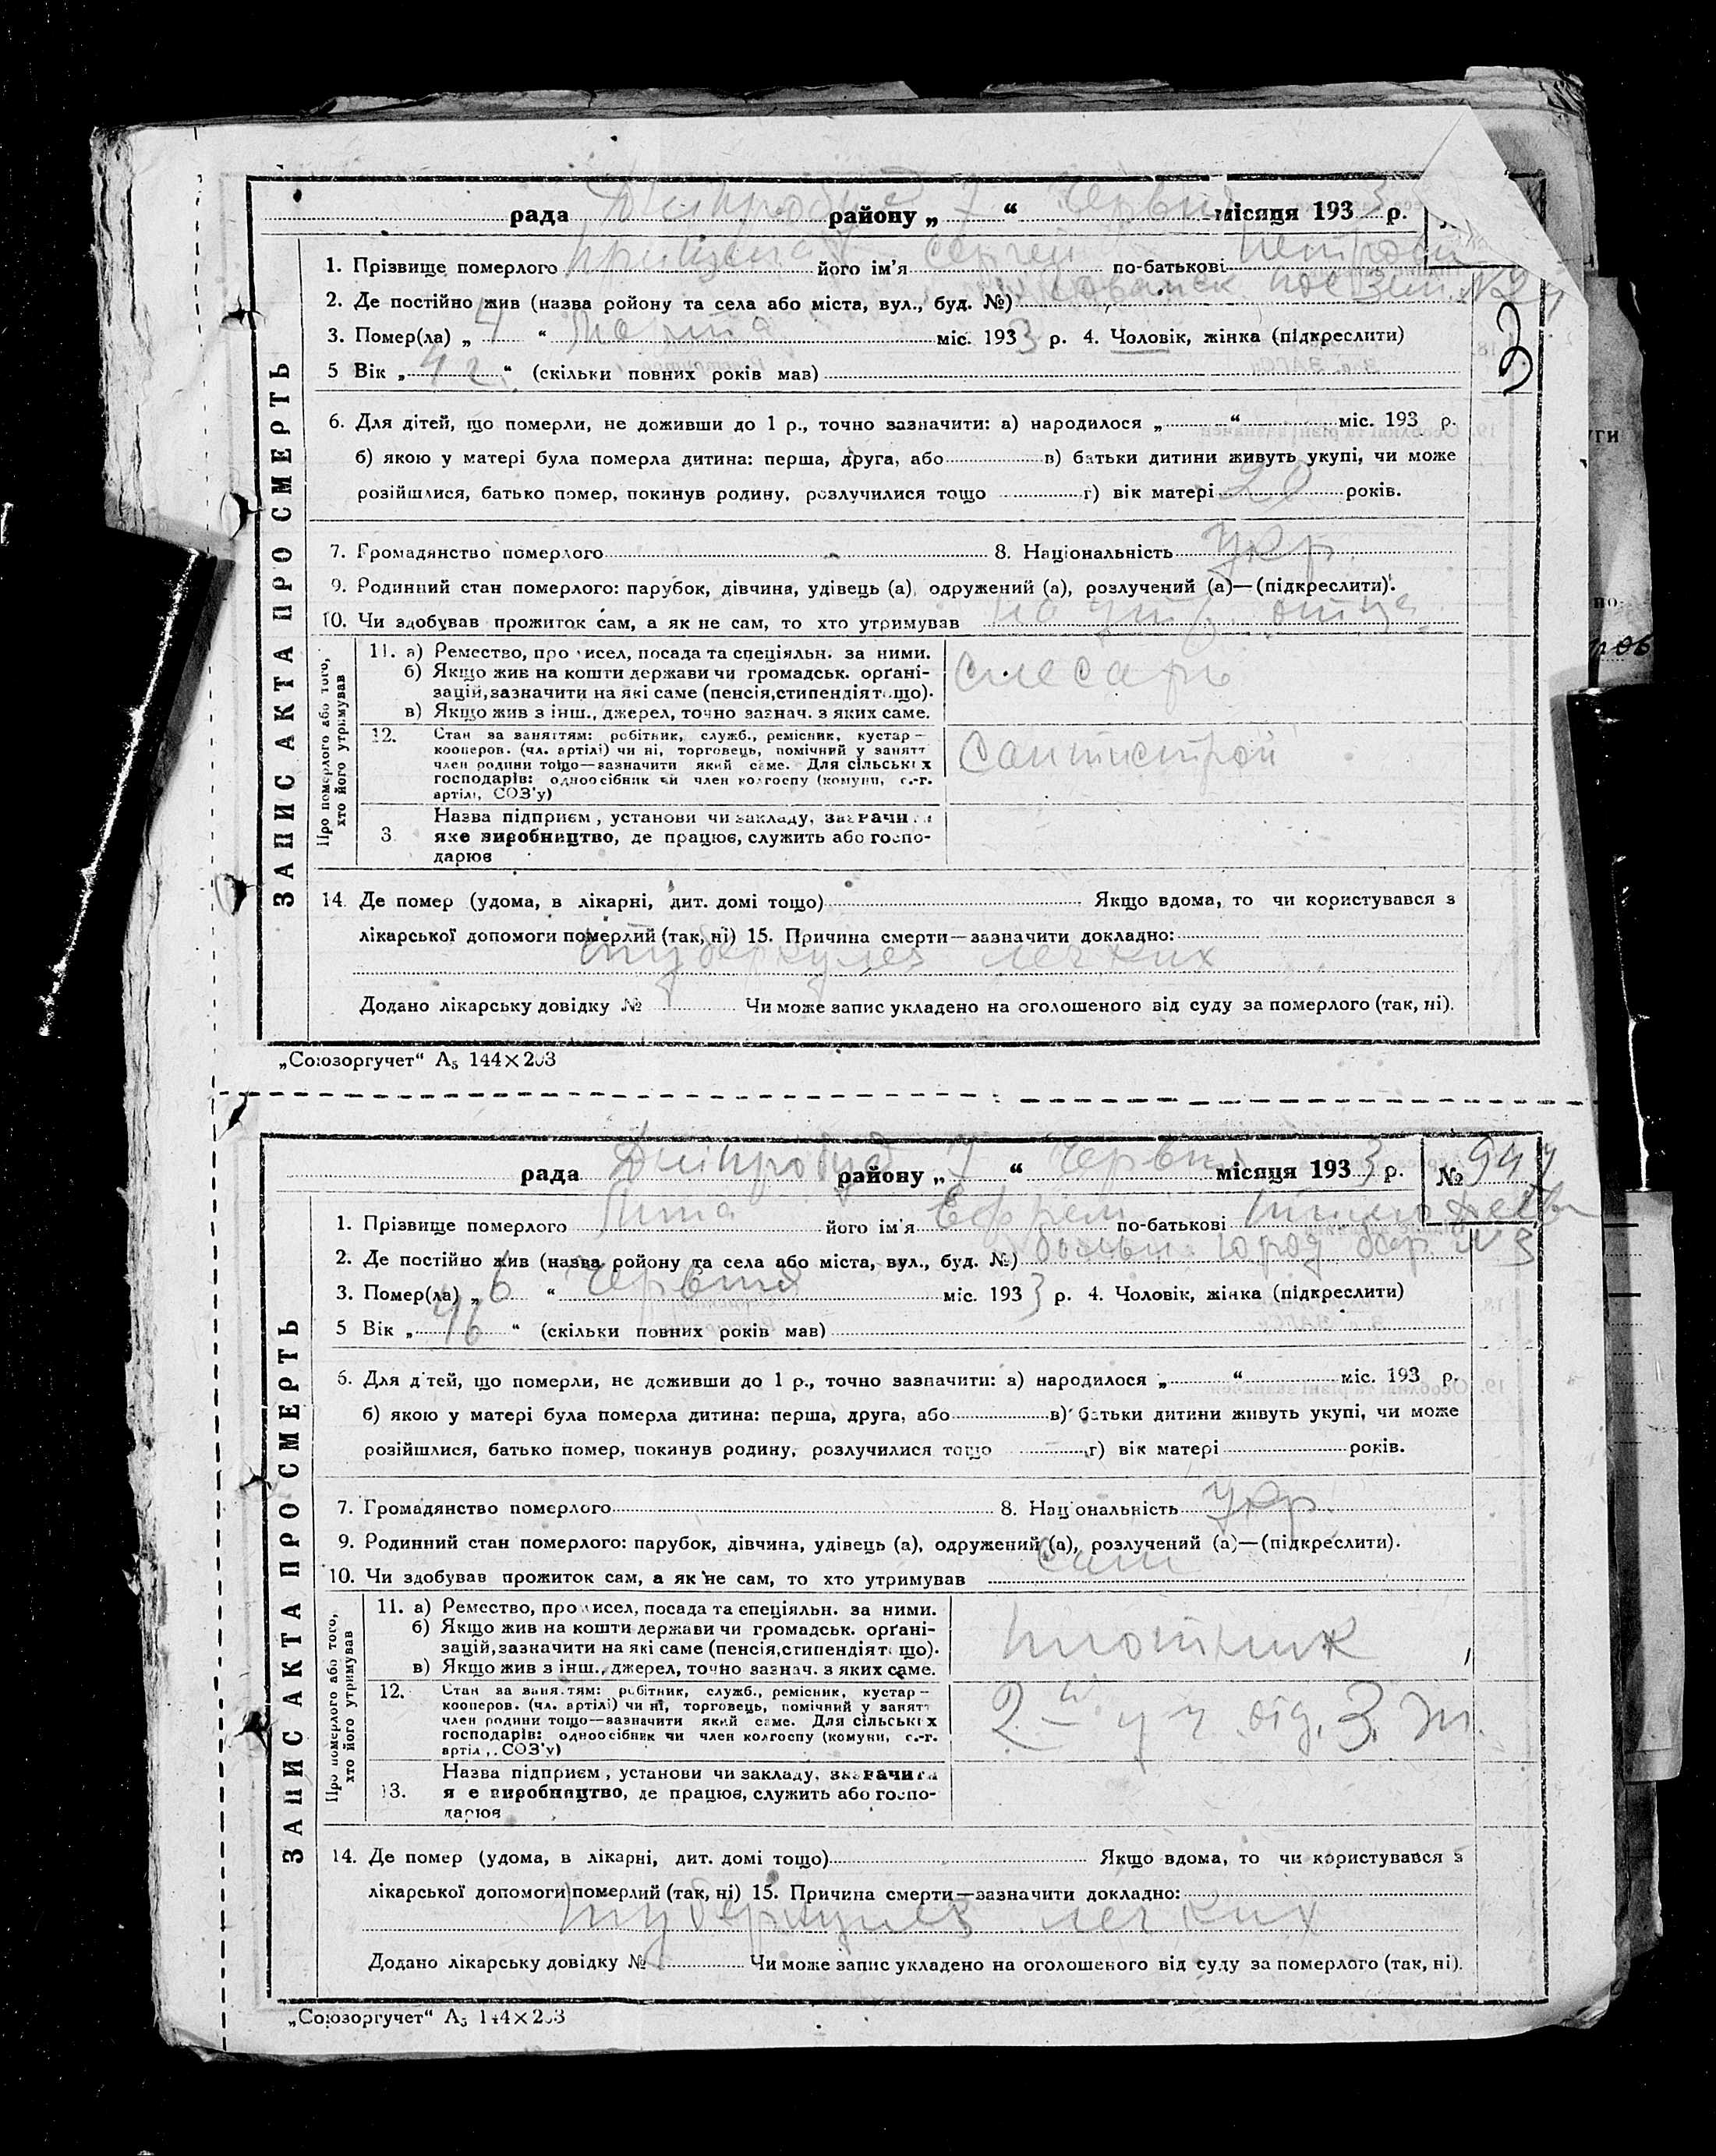 рада Дніпробуд району „ 7 “ Червня місяця 1933 р.
1. Прізвище померлого його ім'я Сергей по-батькові Петров
2. Де постійно жив (назва ройону та села або міста, вул., буд. №)
3. Помер(ла) „ 4 “ міс. 1933 р. 4. Чоловік, жінка (підкреслити)
5 Вік „ “ (скільки повних років мав)
6. Для дітей, що померли, не доживши до 1 р., точно зазначити: а) народилося „ “ міс. 193 р.
б) якою у матері була померла дитина: перша, друга, або в) батьки дитини живуть укупі, чи може
розійшлися, батько помер, покинув родину, розлучилися тощо г) вік матері 20 років.
7. Громадянство померлого 8. Національність укр.
9. Родинний стан померлого: парубок, дівчина, удівець (а), одружений (а), розлучений (а)—(підкреслити).
10. Чи здобував прожиток сам, а як не сам, то хто утримував на ижд. отца
ЗАПИС АКТА ПРО СМЕРТЬ
Про померлого або того,
хто його утримував
11. а) Ремество, про исел, посада та спеціяльн. за ними.
б) Якщо жив на кошти держави чи громадськ. орґані-
зацій, зазначити на які саме (пенсія, стипендія т. що).
в) Якщо жив з інш., джерел, точно зазнач. з яких саме.
слесарь
12. Стан за заняттям: робітник, служб., ремісник, кустар—
кооперов. (чл. артілі) чи ні, торговець, помічний у занятт
член родини тощо—зазначити який саме. Для сільськіх
господарів: одноосібник чи член колгоспу (комуни, с.-г.
артілі, СОЗ'у)
Сантистрой
3. Назва підприєм, установи чи закладу, зазначити
яке виробництво, де працює, служить або госпо-
дарює
14. Де помер (удома, в лікарні, дит. домі тощо) Якщо вдома, то чи користувався з
лікарської допомоги померлий (так, ні) 15. Причина смерти—зазначити докладно:
туберкулез легких
Додано лікарську довідку № Чи може запис укладено на оголошеного від суду за померлого (так, ні).
„Союзоргучет“ А5 144×203
рада Дніпробуд району „ 7 “ Червня місяця 1933 р. № 944
1. Прізвище померлого його ім'я Ефрем по-батькові
2. Де постійно жив (назва ройону та села або міста, вул., буд. №) город бар № 3
3. Помер(ла) „ 6 “ Червня міс. 1933 р. 4. Чоловік, жінка (підкреслити)
5 Вік „ 46 “ (скільки повних років мав)
6. Для дітей, що померли, не доживши до 1 р., точно зазначити: а) народилося „ “ міс. 193 р.
б) якою у матері була померла дитина: перша, друга, або в) батьки дитини живуть укупі, чи може
розійшлися, батько помер, покинув родину, розлучилися тощо г) вік матері років.
7. Громадянство померлого 8. Національність укр.
9. Родинний стан померлого: парубок, дівчина, удівець (а), одружений (а), розлучений (а)—(підкреслити).
10. Чи здобував прожиток сам, а як не сам, то хто утримував сам
ЗАПИС АКТА ПРО СМЕРТЬ
Про померлого або того,
хто його утримував
11. а) Ремество, про исел, посада та спеціяльн. за ними.
б) Якщо жив на кошти держави чи громадськ. орґані-
зацій, зазначити на які саме (пенсія, стипендія т. що).
в) Якщо жив з інш., джерел, точно зазнач. з яких саме.
плотник
12. Стан за заняттям: робітник, служб., ремісник, кустар—
кооперов. (чл. артілі) чи ні, торговець, помічний у занятт
член родини тощо—зазначити який саме. Для сільськіх
господарів: одноосібник чи член колгоспу (комуни, с.-г.
артіл., СОЗ'у)
2й уч. від. З. Ж.
13. Назва підприєм, установи чи закладу, зазначити
яке виробництво, де працює, служить або госпо-
дарює
14. Де помер (удома, в лікарні, дит. домі тощо) Якщо вдома, то чи користувався з
лікарської допомоги померлий (так, ні) 15. Причина смерти—зазначити докладно:
туберкулез легких
Додано лікарську довідку № Чи може запис укладено на оголошеного від суду за померлого (так, ні).
„Союзоргучет“ А5 144×203